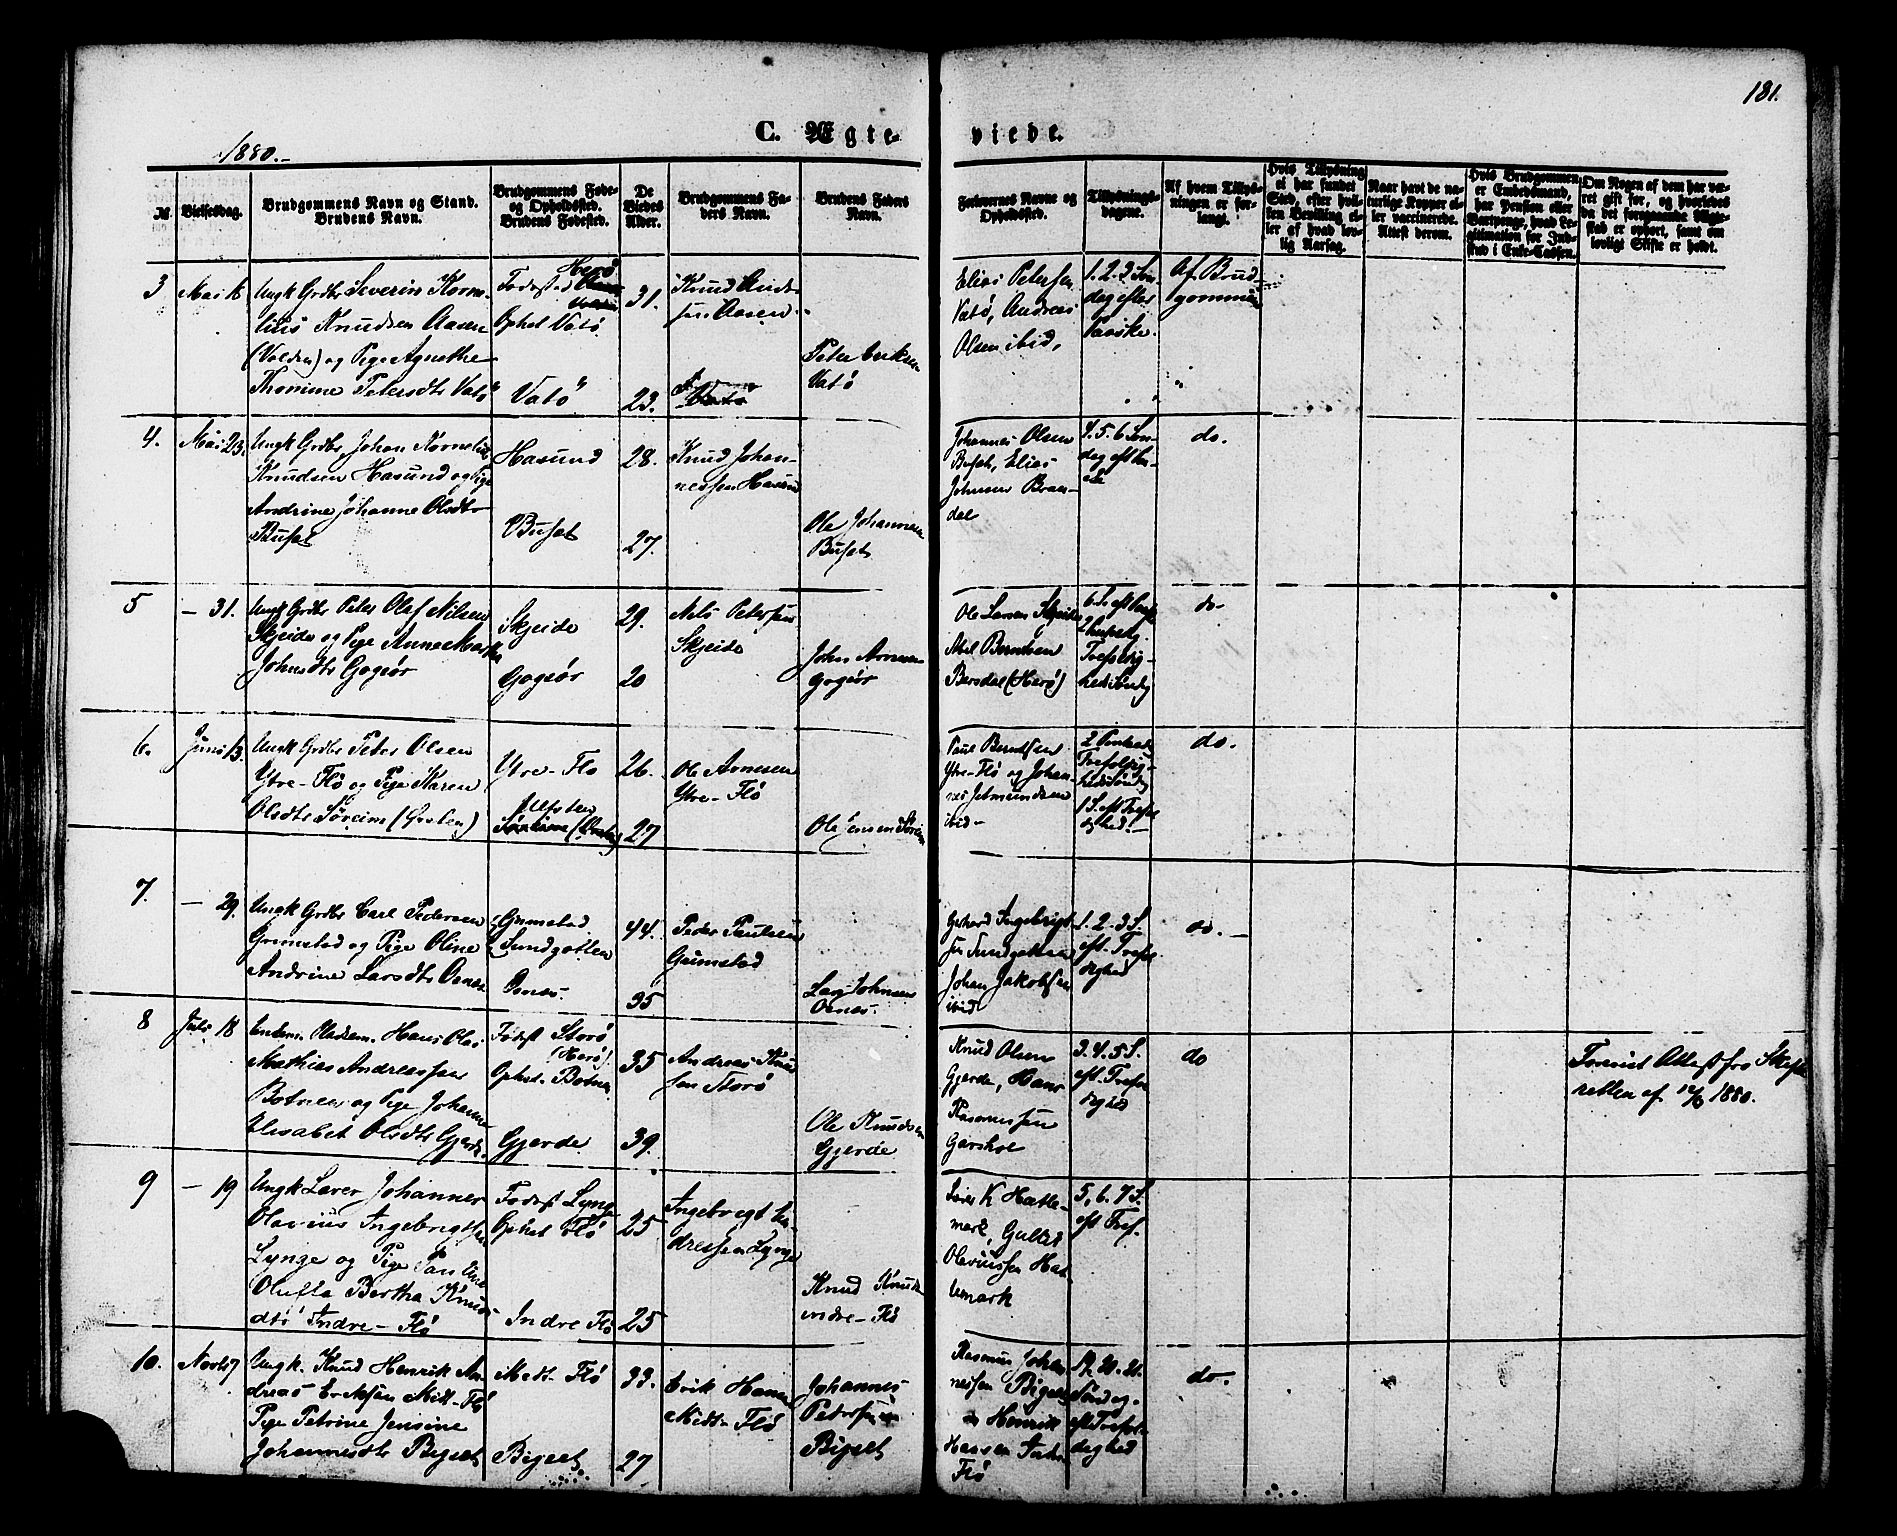 181.
C. Ægte-
viede.
1880.-
№
Vielsesdag.
Brudgommens Navn og Stand.
Brudens Navn.
Brudgommens Føde-
og Opholdssted.
Brudens Fødested.
De
Viedes
Alder.
Brudgommens Fa-
ders Navn.
Brudens Faders
Navn.
Forlovernes Navne og
Opholdssted.
Tillysnings-
dagene.
Af hvem Tillys-
ningen er for-
langt.
Hvis Tillysning
ei har fundet
Sted, efter hvil-
ken Bevilling el-
ler af hvad lov-
lig Aarsag.
Naar havt de na-
turlige Kopper el-
ler vaccinerede.
Attest derom.
Hvis Brudgommen
er Embedsmand,
har Pension eller
Vartpenge, hvad Le-
gitimation for Ind-
skud i Enke-Cassen.
Om Nogen af dem har væ-
ret gift før, og hvorledes
da det foregaaende Ægte-
skab er ophørt, samt om
lovligt Skifte er holdt.
3
Mai 16
Ungk Grdbr Severin Korne-
lius Knudsen Aasen
(Volden) og Pige Agnethe
Thomine Petersdtr Vatø
Fødested Herø
Ophst Vatø
Vatø
31.
23.
Knud Andr
sen Aasen
Peter Eriksen
Vatø
Elias Petersen
Vatø, Andreas
Olsen ibid,
1. 2. 3 Søn
dag efter
Paaske.
Af Brud-
gommen
4.
Mai 23.
Ungk Grdbr Johan Kornelius
Knudsen Hasund og Pige
Andrine Johanne Olsdtr
Busæt
Hasund
Busæt
28.
27.
Knud Johan-
nessen Hasund
Ole Johannesen
Busæt
Johannes Olsen
Busæt, Elias
Johnsen Bran-
dal
4. 5. 6 Søn-
dag eft Pa-
do.
5
- 31.
Ungk Grdbr Peter Olaf Nilsen
Skjeide og Pige Anne Martha
Johnsdtr Gogsør
Skjeide
Gogsør
29.
20
Nils Petersen
Skjeide
John Arnesen
Gogsør
Ole Larsen Skjeide
Abel Berntsen
Bersdal (Herø)
6. S. eft Paaske
2 Pintsedg.
Trefoldig-
hedssøndg
do.
6.
Juni 13.
Ungk Grdbr Peter Olsen
Ytre-Flø og Pige Karen
Olsdtr Søreim (Ørsten)
Ytre-Flø
26.
27
Ole Arnesen
Ytre-Flø
Ole Jensen Søreim
Paul Berntsen
Ytre-Flø og Johan-
nes Jetmundsen
ibid-
2 Pintsedg
Trefoldig-
hedssøndg
1 S. eft Trefol
dighed.
do.
7.
- 29.
Ungk Grdbr Carl Pedersen
Grimstad og Pige Oline
Andrine Larsdtr Osnes
Grimstad
Sundgotten
Osnes.
44.
35
Peder Paulsen
Grimstad
Lars Johnsen
Osnes.
Gerhard Ingebrigt-
sen Sundgotten
Johan Jakobsen
ibid
1. 2. 3 S.
eft. Trefol
dighed
do.
8
Juli 18
Enkem. Pladsm. Hans Olai
Mathias Andreassen
Botnen og Pige Johanne
Elisabet Olsdtr Gjerde.
Fødest Storø
(Herø)
Ophst. Botnen
Gjerde.
35
39.
Andreas Knud
sen Storø
Ole Knudsen
Gjerde
Knud Olsen
Gjerde, Hans
Rasmussen
Garshol
3. 4. 5 S.
eft. Trefol
dighed
do
Forevist Attest fra Skifte
retten af 12/6 1880.
9
- 19
Ungk Laver Johannes
Olavius Ingebrigtsen
Lynge og Pige Pauline
Olufta Bertha Knuds
dtr Indre-Flø
Fødest Lynge
Ophst Flø
Indre Flø
25
25
Ingebrigt An-
dressen Lynge
Knud Knudsen
indre-Flø
K Hatle-
mark,
Olavussen Hat-
lemark
5, 6. 7 S.
eft Tref.
10.
Novbr 7
Ungk. Knud Henrik An-
dreas Eriksen Midt-Flø
Pige Petrine Jensine
Johannesdtr Bigset
Midt-Flø
Bigset
33.
27
Erik Hansen
Midt-Flø
Johannes
Petersen
Bigset
Rasmus Johan
nessen Bigset
og Henrik
Hansen
Flø
19. 20. 21.
Søndag.
eft Trefol-
dighed
do.